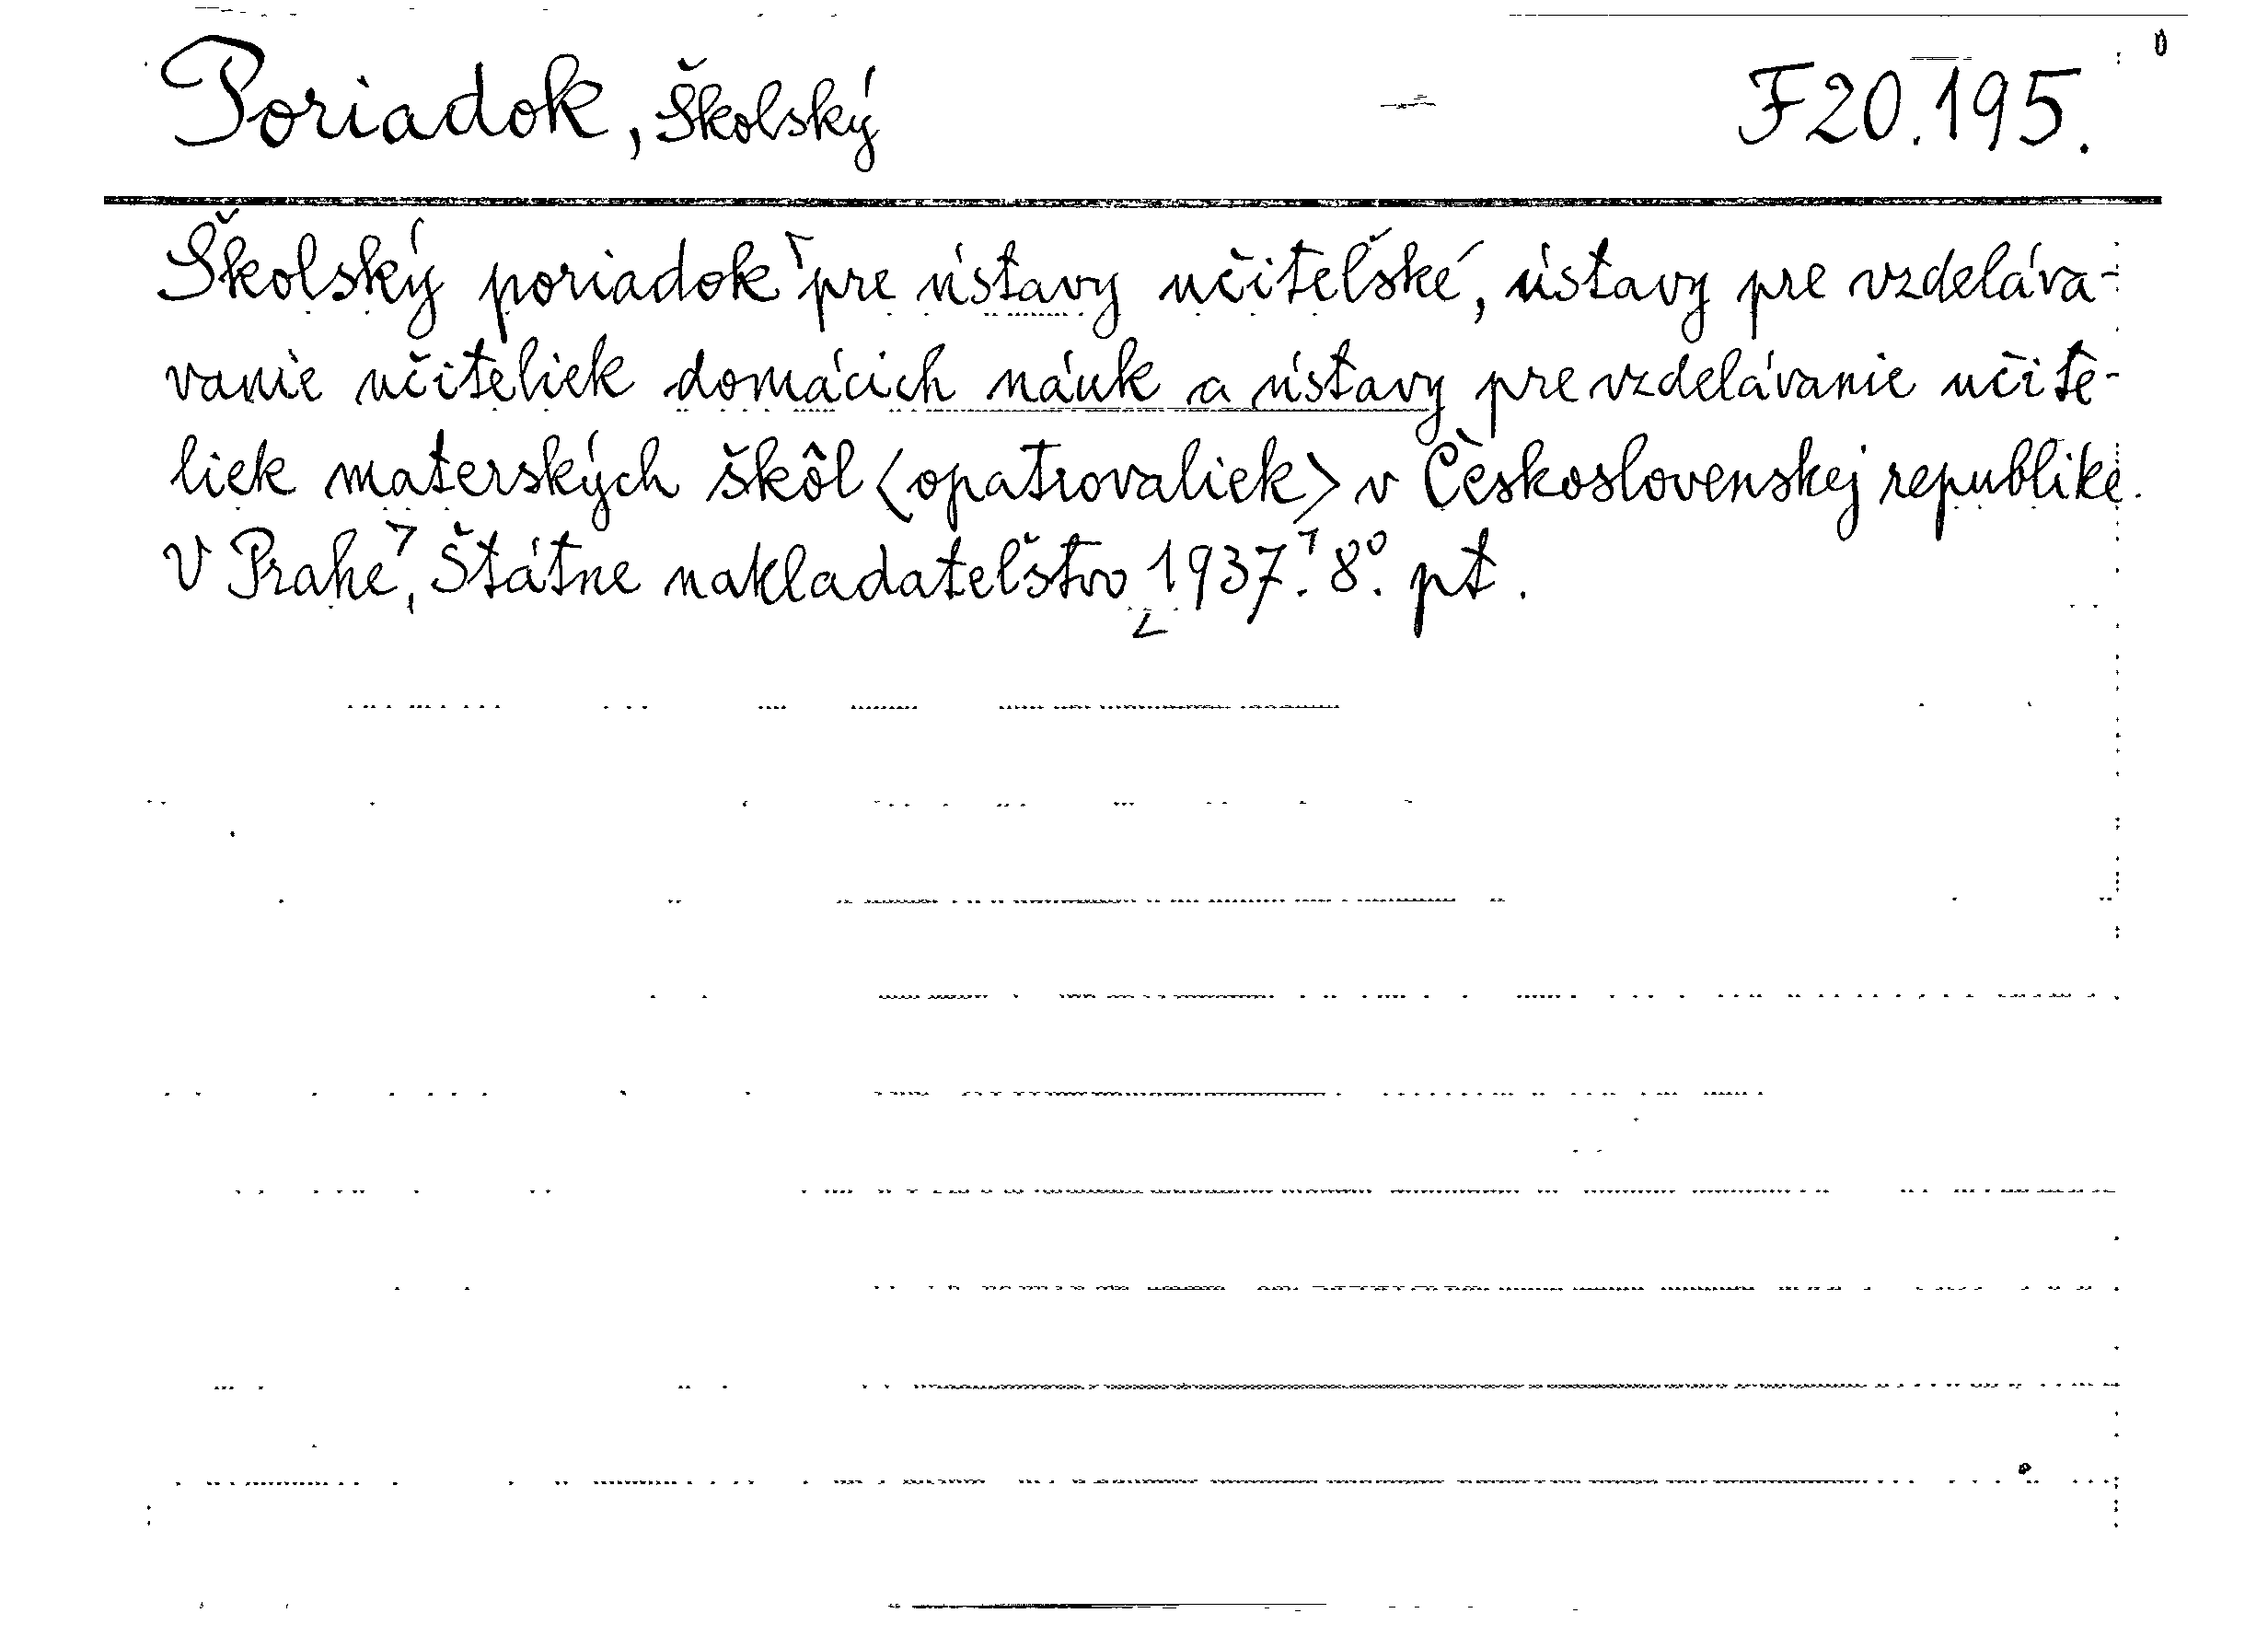 Poriadok, Školský F20.195.
Školský poriadok pre ústavy učiteľské, ústavy pre vzdeláva-
vanie učiteliek domácich náuk a ústavy pre vzdelávanie učite-
liek materských škôl <opatrovaliek> v Československej republike.
V Prahe, Štátne nakladateľstvo 1937. 8°. pt.